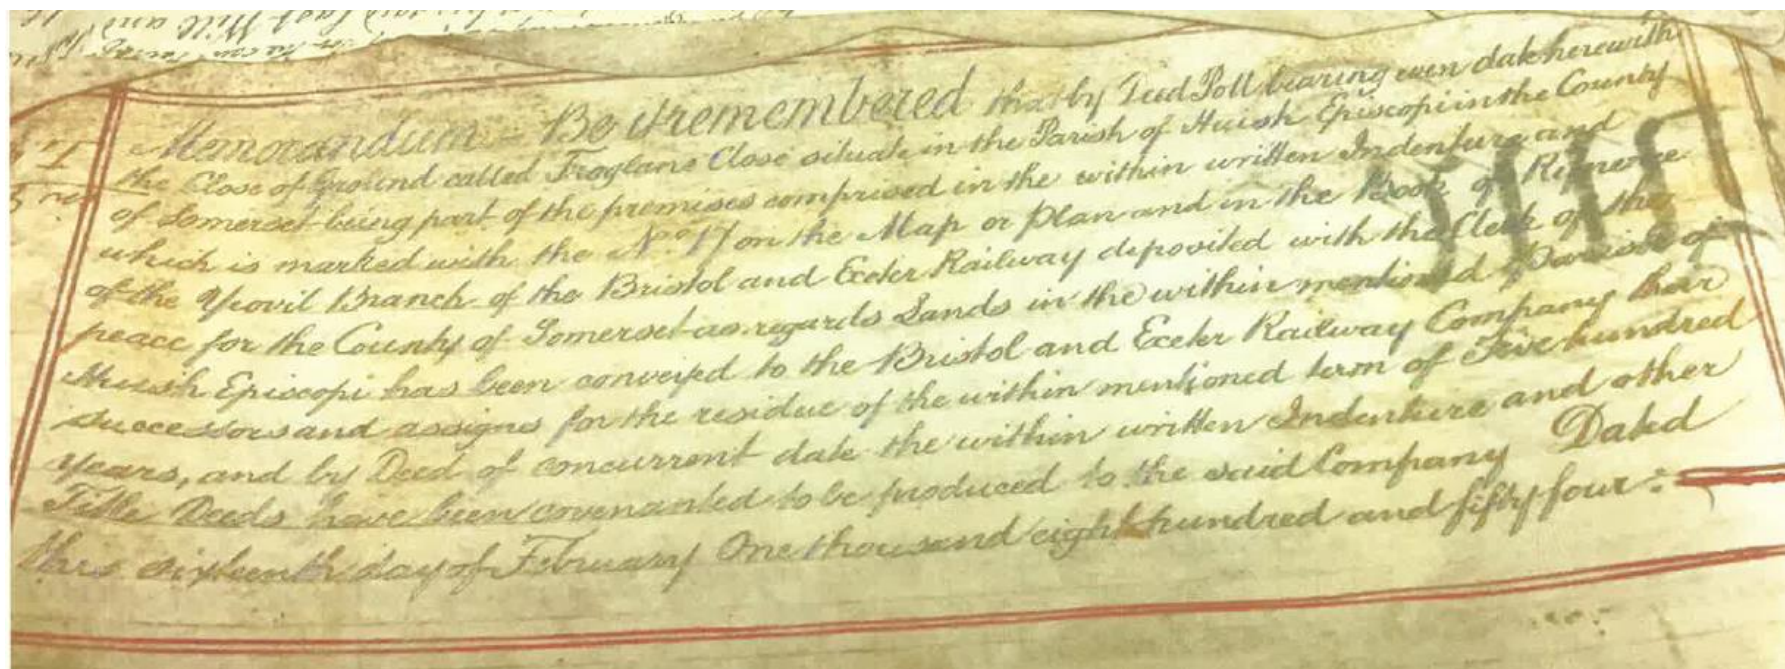 Memorandum - Be it remembered that by Deed Poll bearing even date herewith
the Close of Ground called Froglane Close situate in the Parish of Huish Episcopi in the County
of Somerset being part of the premises comprised in the within written Indenture and
which is marked with the No. 17 on the Map or Plan and in the Book of Reference
of the Yeovil Branch of the Bristol and Exeter Railway deposited with the Clerk of the
peace for the County of Somerset as regards Lands in the within mentioned Parish of
Huish Episcopi has been conveyed to the Bristol and Exeter Railway Company their
successors and assigns for the residue of the within mentioned term of Five hundred
years, and by Deed of concurrent date the within written Indenture and other
Title Deeds have been covenanted to be produced to the said Company Dated
this sixteenth day of February One thousand eight hundred and fifty four